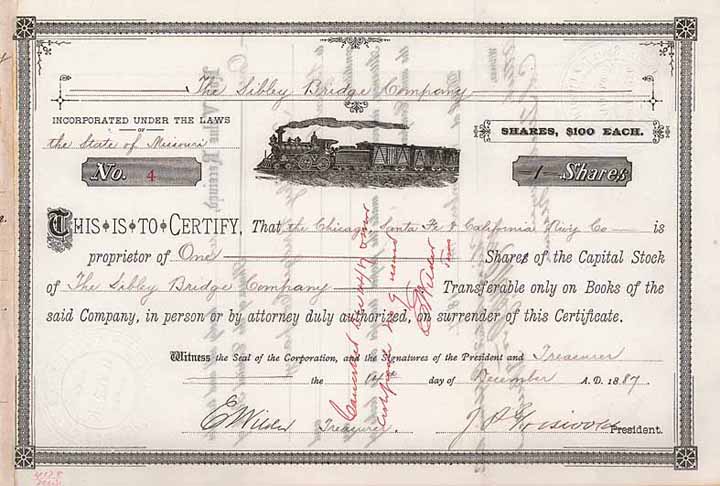 The Sibley Bridge Company
INCORPORATED UNDER THE LAWS
OF
the State of Missouri
SHARES, $100 EACH.
No. 4
1 Shares
THIS IS TO CERTIFY, That the Chicago, Santa Fe & California Rwy Co is
proprietor of One Shares of the Capital Stock
of The Sibley Bridge Company Transferable only on Books of the
said Company, in person or by attorney duly authorized, on surrender of this Certificate.
Witness the Seal of the Corporation, and the Signatures of the President and Treasurer
the day of December A.D. 1887.
E Wilder Treasurer. President.
Cancelled Dec
Certificate No 9
E Wilder
Treas